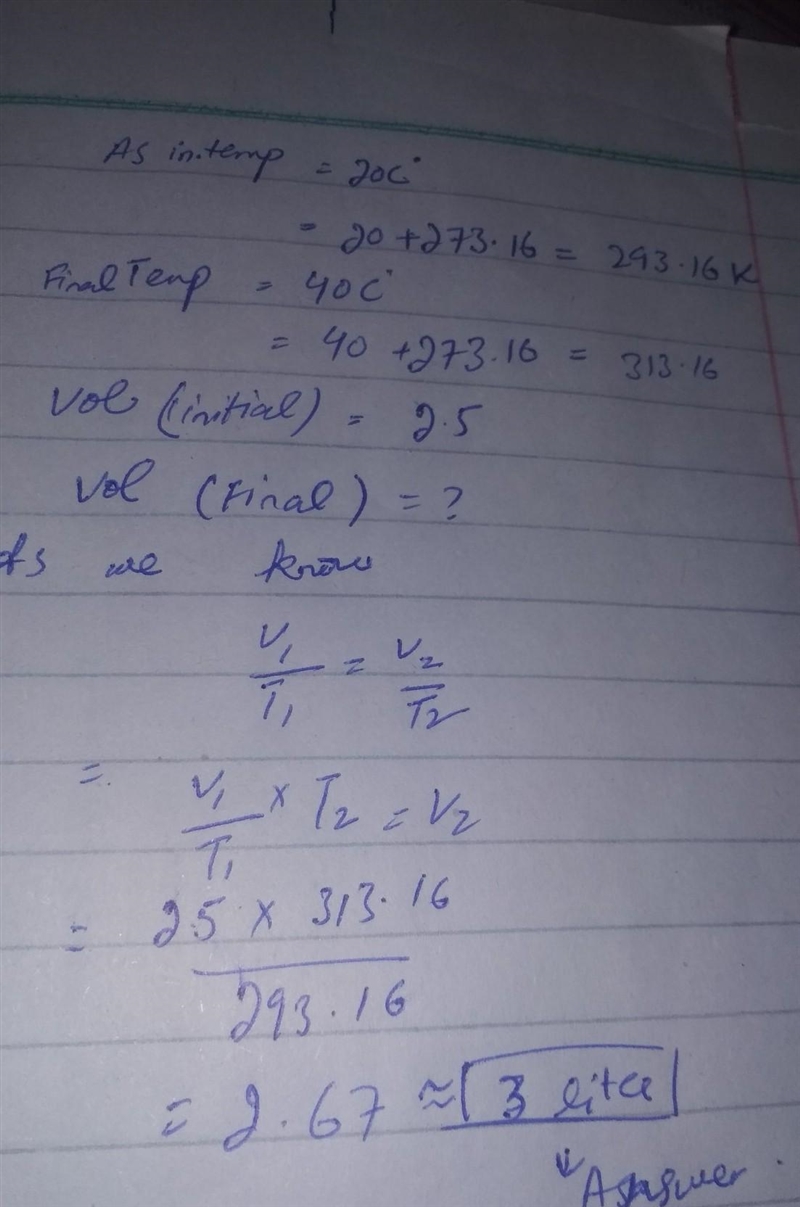 As in.temp = 20c°
= 20 + 273.16 = 293.16 K
Final Temp = 40c°
= 40 + 273.16 = 313.16
Vol (initial) = 2.5
Vol (Final) = ?
As we know
V₁/T₁ = V₂/T₂
= V₁/T₁ × T₂ = V₂
= 2.5 × 313.16 / 293.16
= 2.67 ≈ 3 litre
Answer.